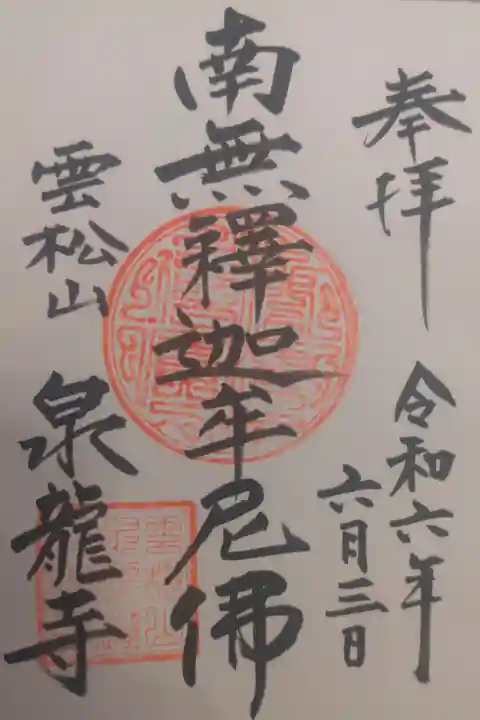 奉拝
令和六年
六月三日
南無釋迦牟尼佛
雲松山
泉龍寺